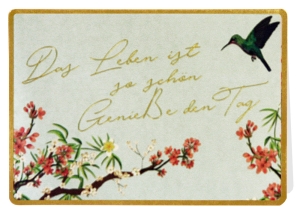 Das Leben ist
so schön
Genieße den Tag